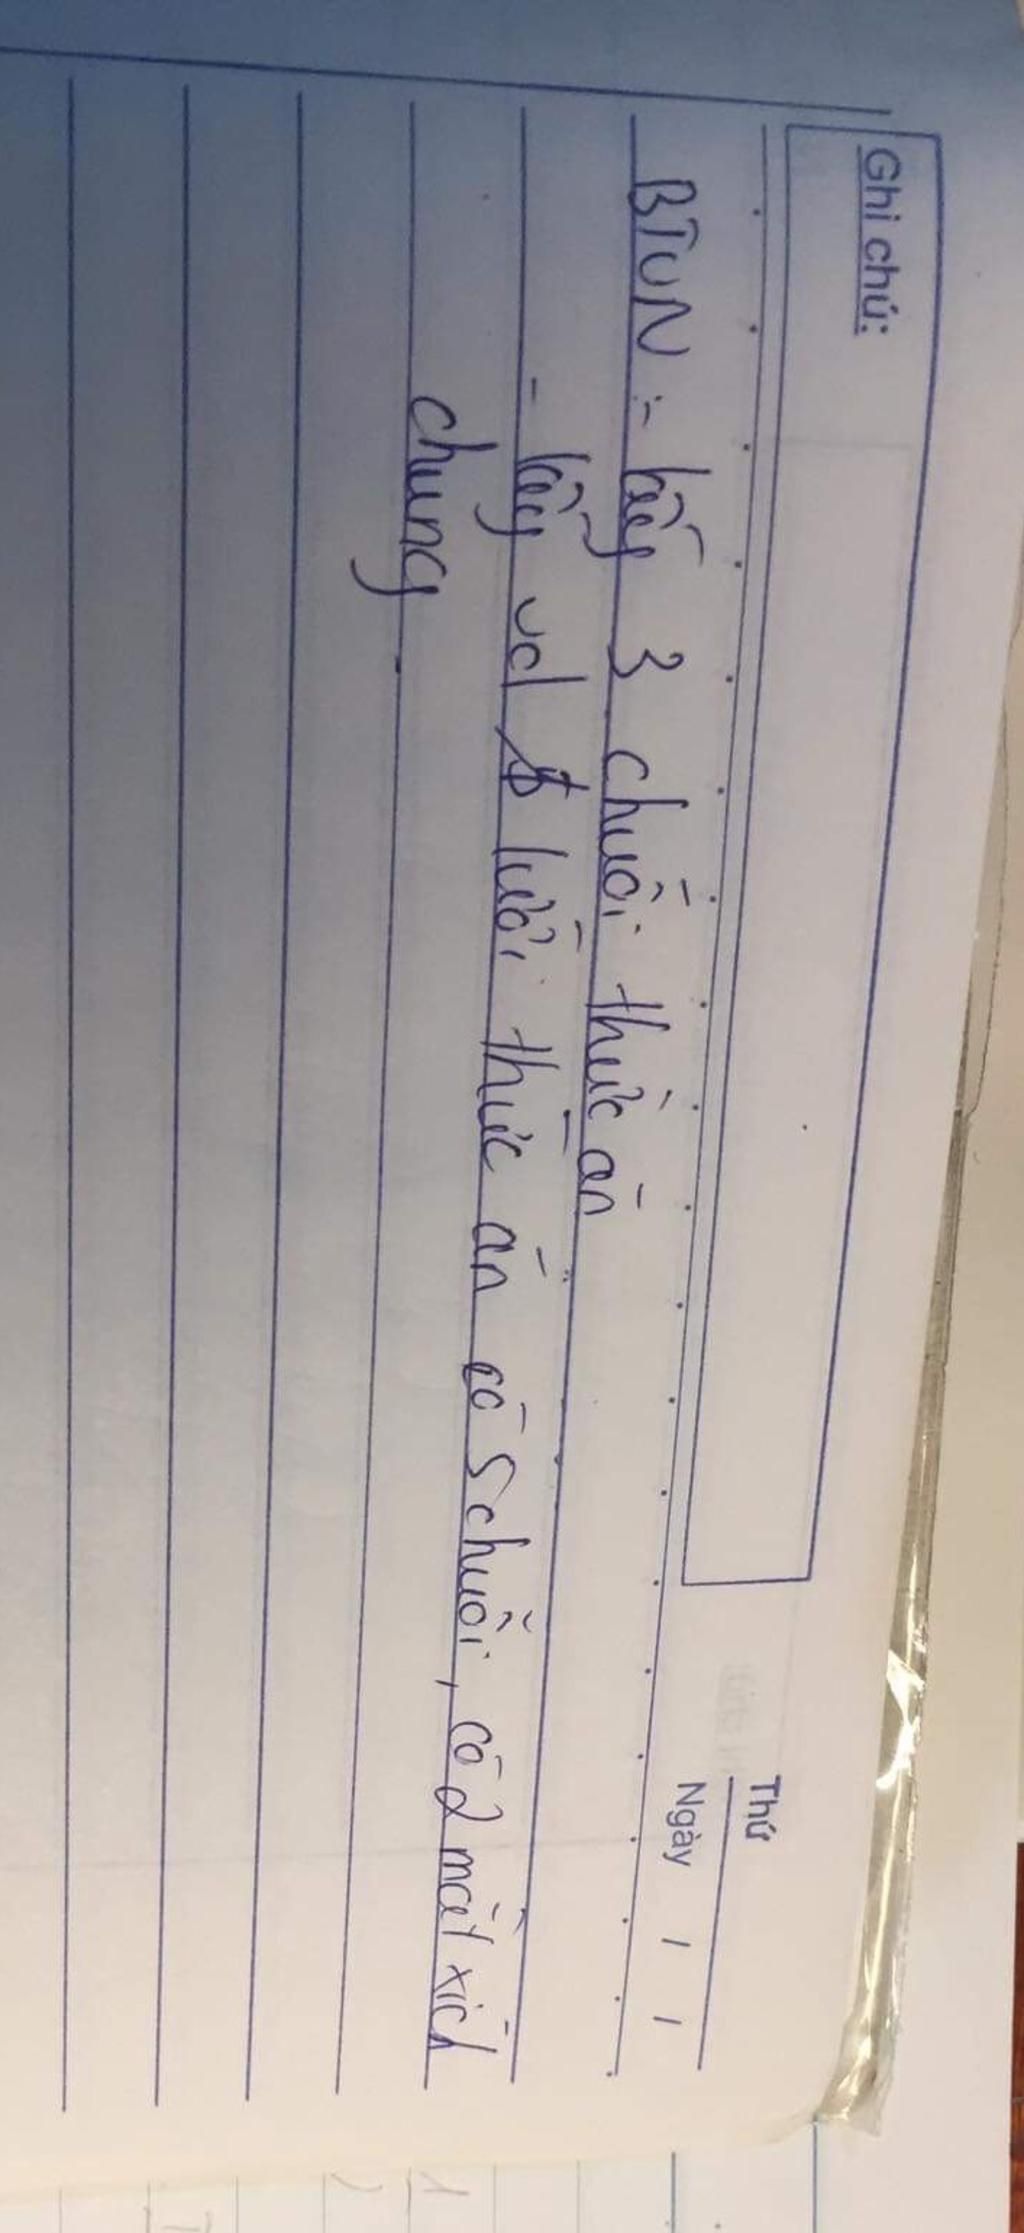 Ghi chú:
Thứ
Ngày / /
BTVN :- lấy 3 chuỗi thức ăn
- lấy vd lưới thức ăn có 5 chuỗi, có 2 mắt xích
chung